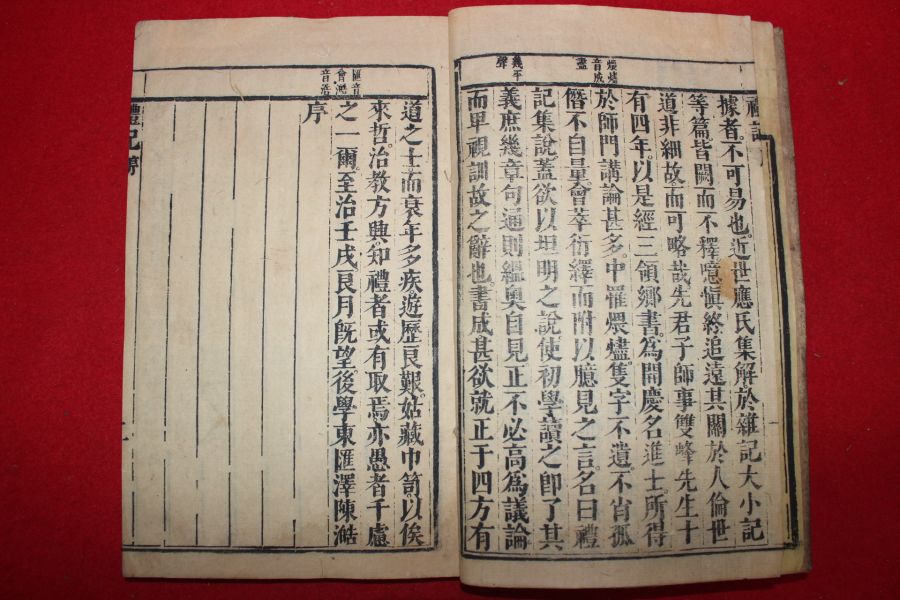 煨燼
音成
盡
幾平
聲
據者不可易也。近世應氏集解於雜記大小記
等篇皆闕而不釋噫愼終追遠其關於人倫世
道非細故而可略哉先君子師事雙峰先生十
有四年。以是經三領鄉書。爲開慶名進士。所得
於師門講論甚多。中罹煨燼隻字不遺。不肖孤
僭不自量會萃衍繹而附以臆見之言名曰禮
記集說蓋欲以坦明之說使初學讀之卽了其
義庶幾章句通則緼奧自見正不必高爲議論
而卑視訓故之辭也。書成甚欲就正于四方有
匯音
會澔
音浩
道之士而衰年多疾遊歷良艱。姑藏巾笥。以俟
來哲。治教方興知禮者或有取焉亦愚者千慮
之一爾。至治壬戌良月旣望後學東匯澤陳澔
序
禮記序